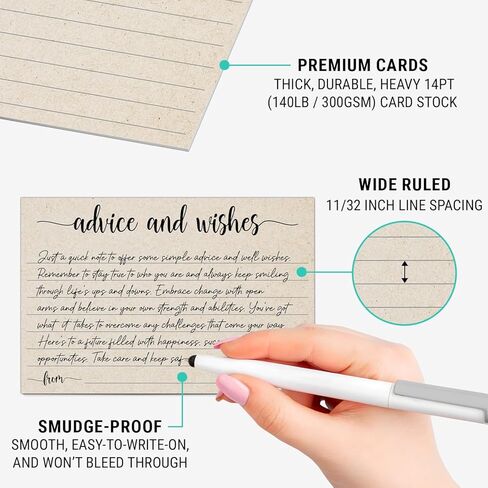 PREMIUM CARDS
THICK, DURABLE, HEAVY 14PT
(140LB / 300GSM) CARD STOCK
WIDE RULED
11/32 INCH LINE SPACING
advice and wishes
Just a quick note to offer some simple advice and well wishes.
Remember to stay true to who you are and always keep smiling
through life's ups and downs. Embrace change with open
arms and believe in your own strength and abilities. You've got
what it takes to overcome any challenges that come your way.
Here's to a future filled with happiness,
opportunities. Take care and keep
from
SMUDGE-PROOF
SMOOTH, EASY-TO-WRITE-ON,
AND WON'T BLEED THROUGH